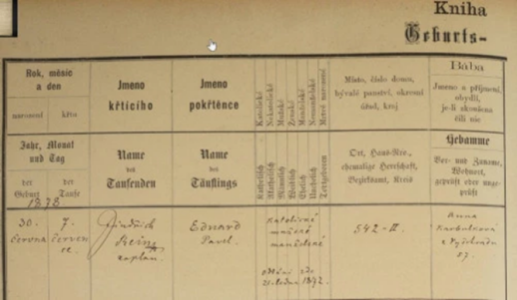 Kniha
Geburts-
Rok, měsíc
a den
narození
křtu
Jahr, Monat
und Tag
der
Geburt
der
Taufe
1873
30.
června
7.
červen
ce.
Jmeno
křtícího
Name
des
Taufenden
Jindřich
kaplan.
Jmeno
pokřtěnce
Name
des
Täuflings
Eduard
Pavel.
Katolické
Nekatolické
Mužské
Ženské
Manželské
Nemanželské
Katholisch
Männlich
Weiblich
Ehelich
Unehelich
Todtgeboren
katolické
mužské
manželské
Místo, číslo domu,
bývalé panství, okresní
úřad, kraj
Ort, Haus-Nro.,
ehemalige Herrschaft,
Bezirksamt, Kreis
542-II.
Bába
Jmeno a příjmení,
obydlí,
je-li zkoušena
čili nic
Hebamme
Vor- und Zuname,
Wohnort,
geprüft oder unge-
prüft
Anna
z Vyšehradu
57.